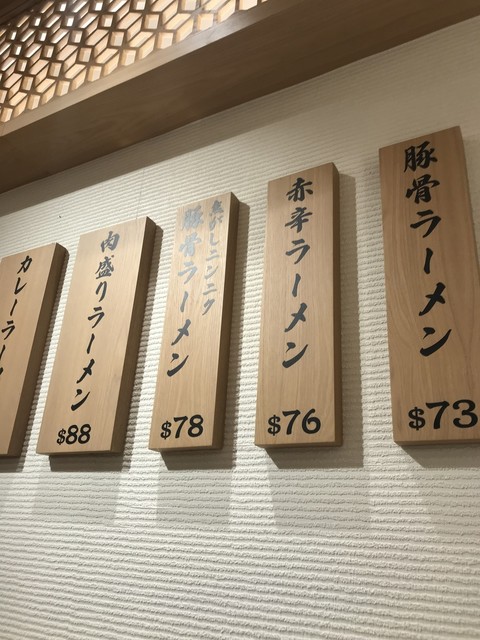 豚骨ラーメン
$73
赤辛ラーメン
$76
焦がしニンニク
豚骨ラーメン
$78
肉盛りラーメン
$88
カレーラー